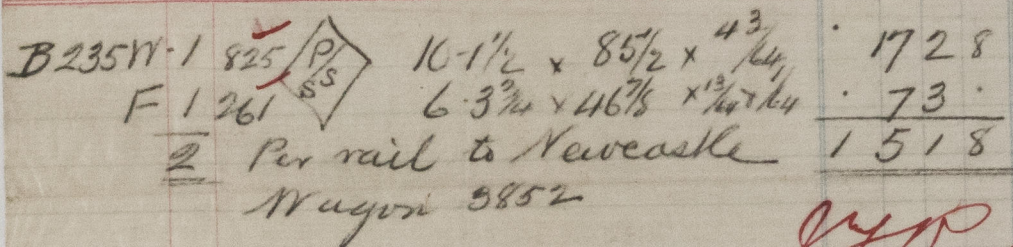 B235W · 1 825 P/SS 10·1½ × 85½ × 43/64 · 17 2 8
F 1 261 6·3¾ × 46⅞ · 7 3 ·
2 Per rail to Newcastle 1 5 1 8
Wagon 3852